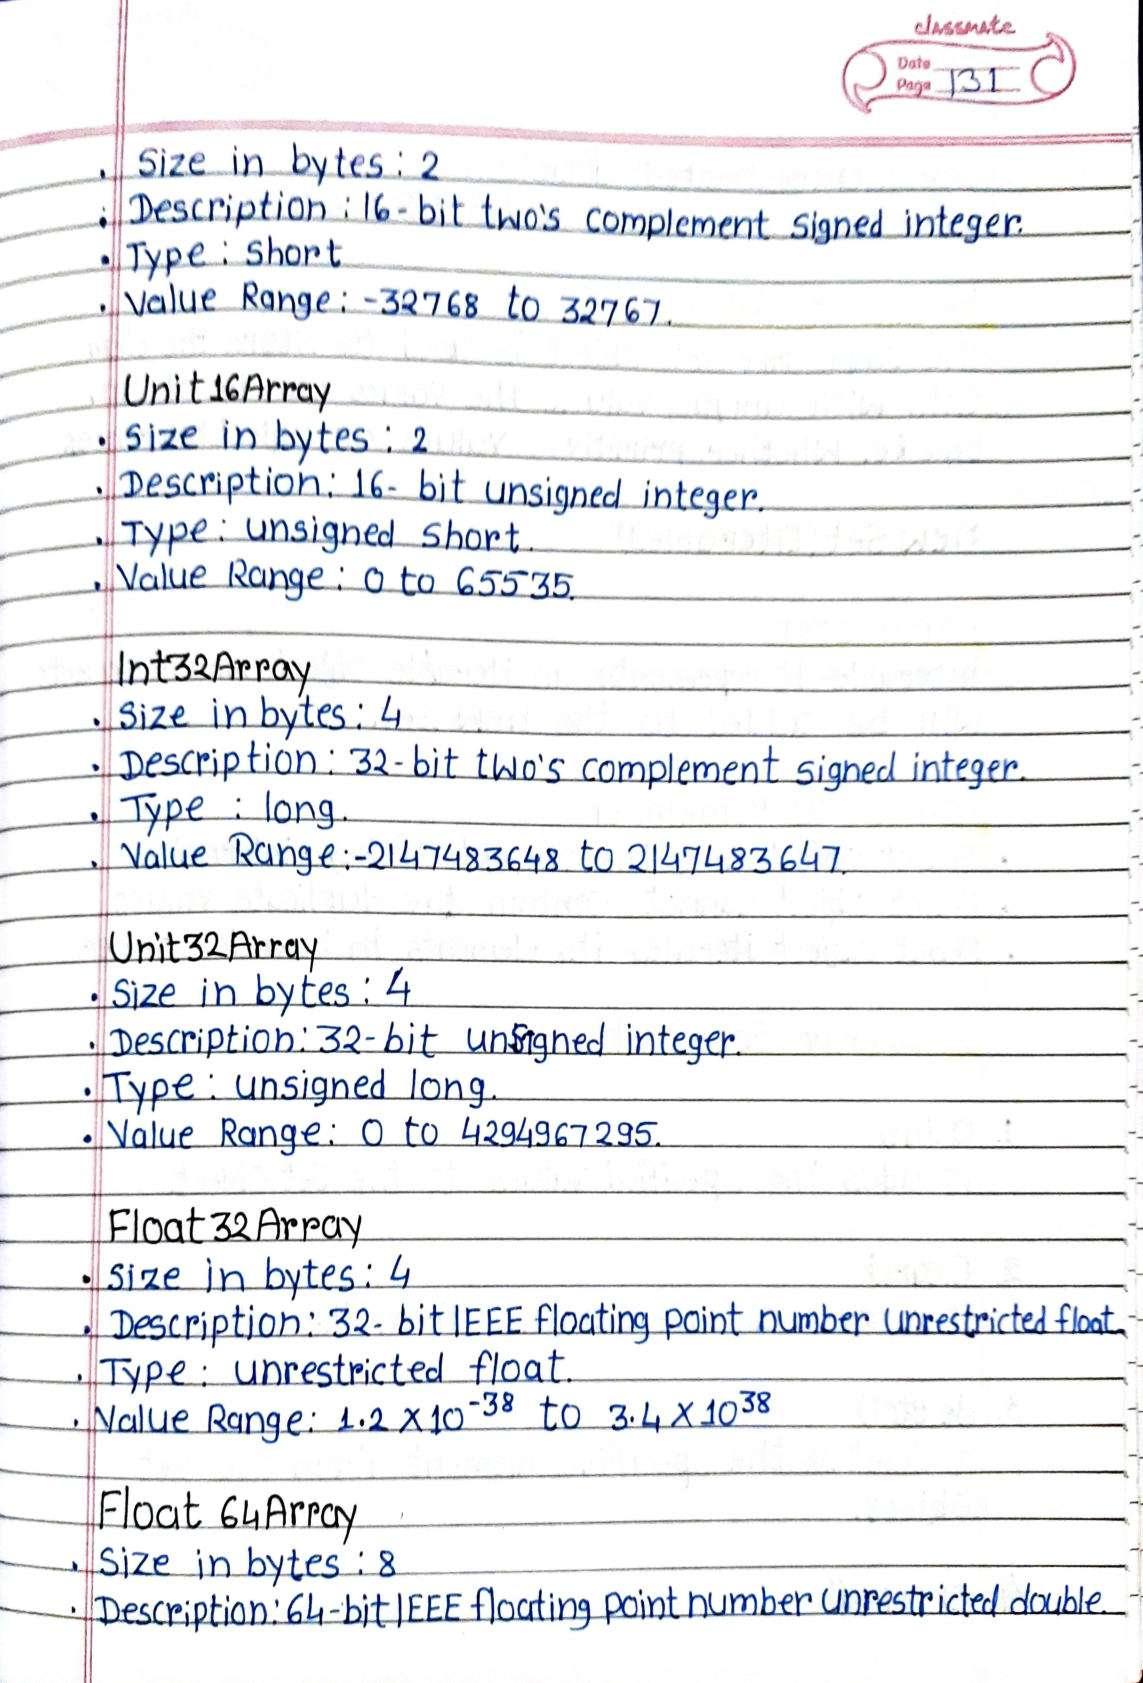 classmate
Date
Page 131
• Size in bytes: 2
• Description: 16-bit two's complement signed integer.
• Type: short
• Value Range: -32768 to 32767.
Unit16Array
• Size in bytes: 2
• Description: 16-bit unsigned integer.
• Type: unsigned short.
• Value Range: 0 to 65535.
Int32Array
• Size in bytes: 4
• Description: 32-bit two's complement signed integer.
• Type: long.
• Value Range: -2147483648 to 2147483647.
Unit32Array
• Size in bytes: 4
• Description: 32-bit unsigned integer.
• Type: unsigned long.
• Value Range: 0 to 4294967295.
Float32Array
• Size in bytes: 4
• Description: 32-bit IEEE floating point number unrestricted float.
• Type: unrestricted float.
• Value Range: 1.2 × 10⁻³⁸ to 3.4 × 10³⁸
Float 64Array
• Size in bytes: 8
• Description: 64-bit IEEE floating point number unrestricted double.